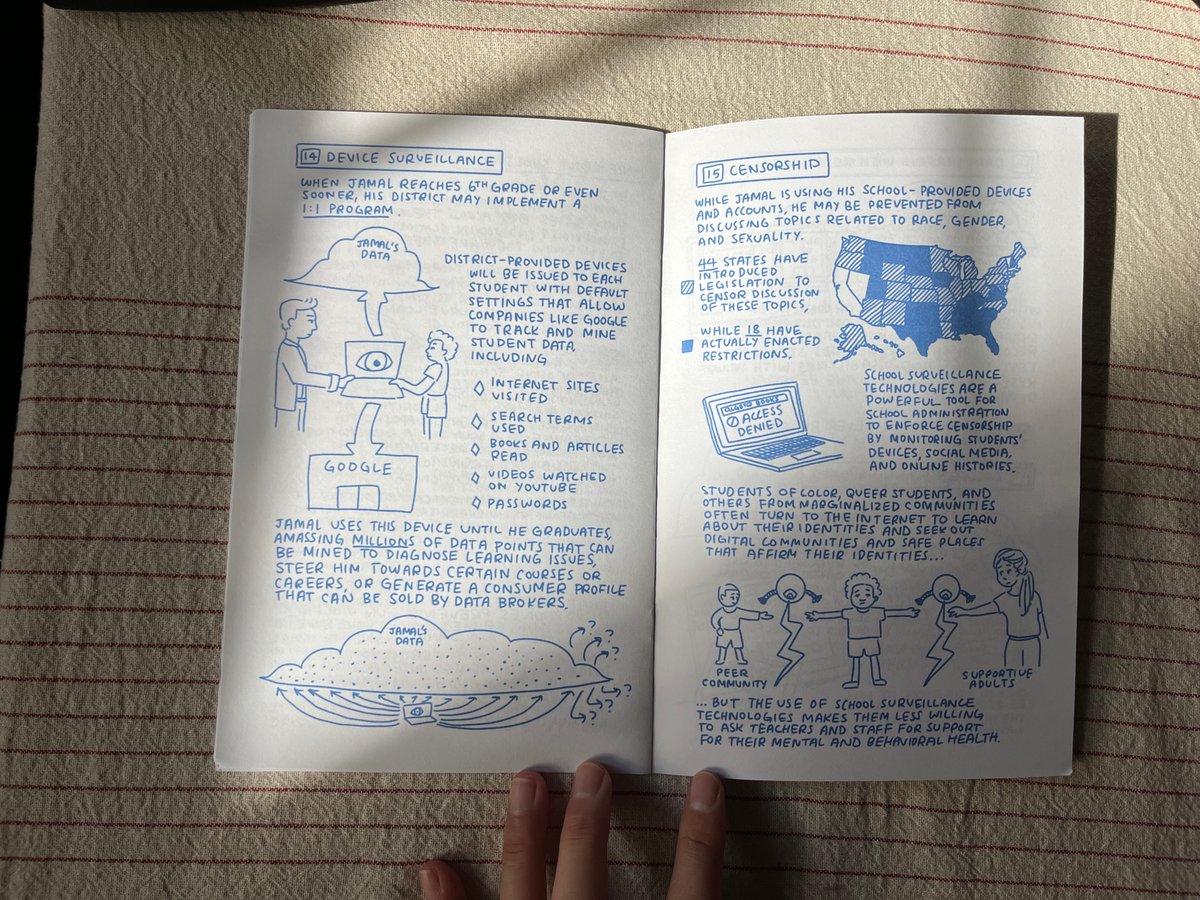 14 DEVICE SURVEILLANCE
WHEN JAMAL REACHES 6TH GRADE OR EVEN
SOONER, HIS DISTRICT MAY IMPLEMENT A
1:1 PROGRAM.
JAMAL'S
DATA
DISTRICT-PROVIDED DEVICES
WILL BE ISSUED TO EACH
STUDENT WITH DEFAULT
SETTINGS THAT ALLOW
COMPANIES LIKE GOOGLE
TO TRACK AND MINE
STUDENT DATA,
INCLUDING
INTERNET SITES
VISITED
SEARCH TERMS
USED
BOOKS AND ARTICLES
READ
VIDEOS WATCHED
ON YOUTUBE
PASSWORDS
GOOGLE
JAMAL USES THIS DEVICE UNTIL HE GRADUATES,
AMASSING MILLIONS OF DATA POINTS THAT CAN
BE MINED TO DIAGNOSE LEARNING ISSUES,
STEER HIM TOWARDS CERTAIN COURSES OR
CAREERS, OR GENERATE A CONSUMER PROFILE
THAT CAN BE SOLD BY DATA BROKERS.
JAMAL'S
DATA
?
?
?
?
?
?
15 CENSORSHIP
WHILE JAMAL IS USING HIS SCHOOL-PROVIDED DEVICES
AND ACCOUNTS, HE MAY BE PREVENTED FROM
DISCUSSING TOPICS RELATED TO RACE, GENDER,
AND SEXUALITY.
44 STATES HAVE
INTRODUCED
LEGISLATION TO
CENSOR DISCUSSION
OF THESE TOPICS,
WHILE 18 HAVE
ACTUALLY ENACTED
RESTRICTIONS.
LGBTQ BOOKS
ACCESS
DENIED
SCHOOL SURVEILLANCE
TECHNOLOGIES ARE A
POWERFUL TOOL FOR
SCHOOL ADMINISTRATION
TO ENFORCE CENSORSHIP
BY MONITORING STUDENTS'
DEVICES, SOCIAL MEDIA,
AND ONLINE HISTORIES.
STUDENTS OF COLOR, QUEER STUDENTS, AND
OTHERS FROM MARGINALIZED COMMUNITIES
OFTEN TURN TO THE INTERNET TO LEARN
ABOUT THEIR IDENTITIES AND SEEK OUT
DIGITAL COMMUNITIES AND SAFE PLACES
THAT AFFIRM THEIR IDENTITIES...
PEER
COMMUNITY
SUPPORTIVE
ADULTS
...BUT THE USE OF SCHOOL SURVEILLANCE
TECHNOLOGIES MAKES THEM LESS WILLING
TO ASK TEACHERS AND STAFF FOR SUPPORT
FOR THEIR MENTAL AND BEHAVIORAL HEALTH.